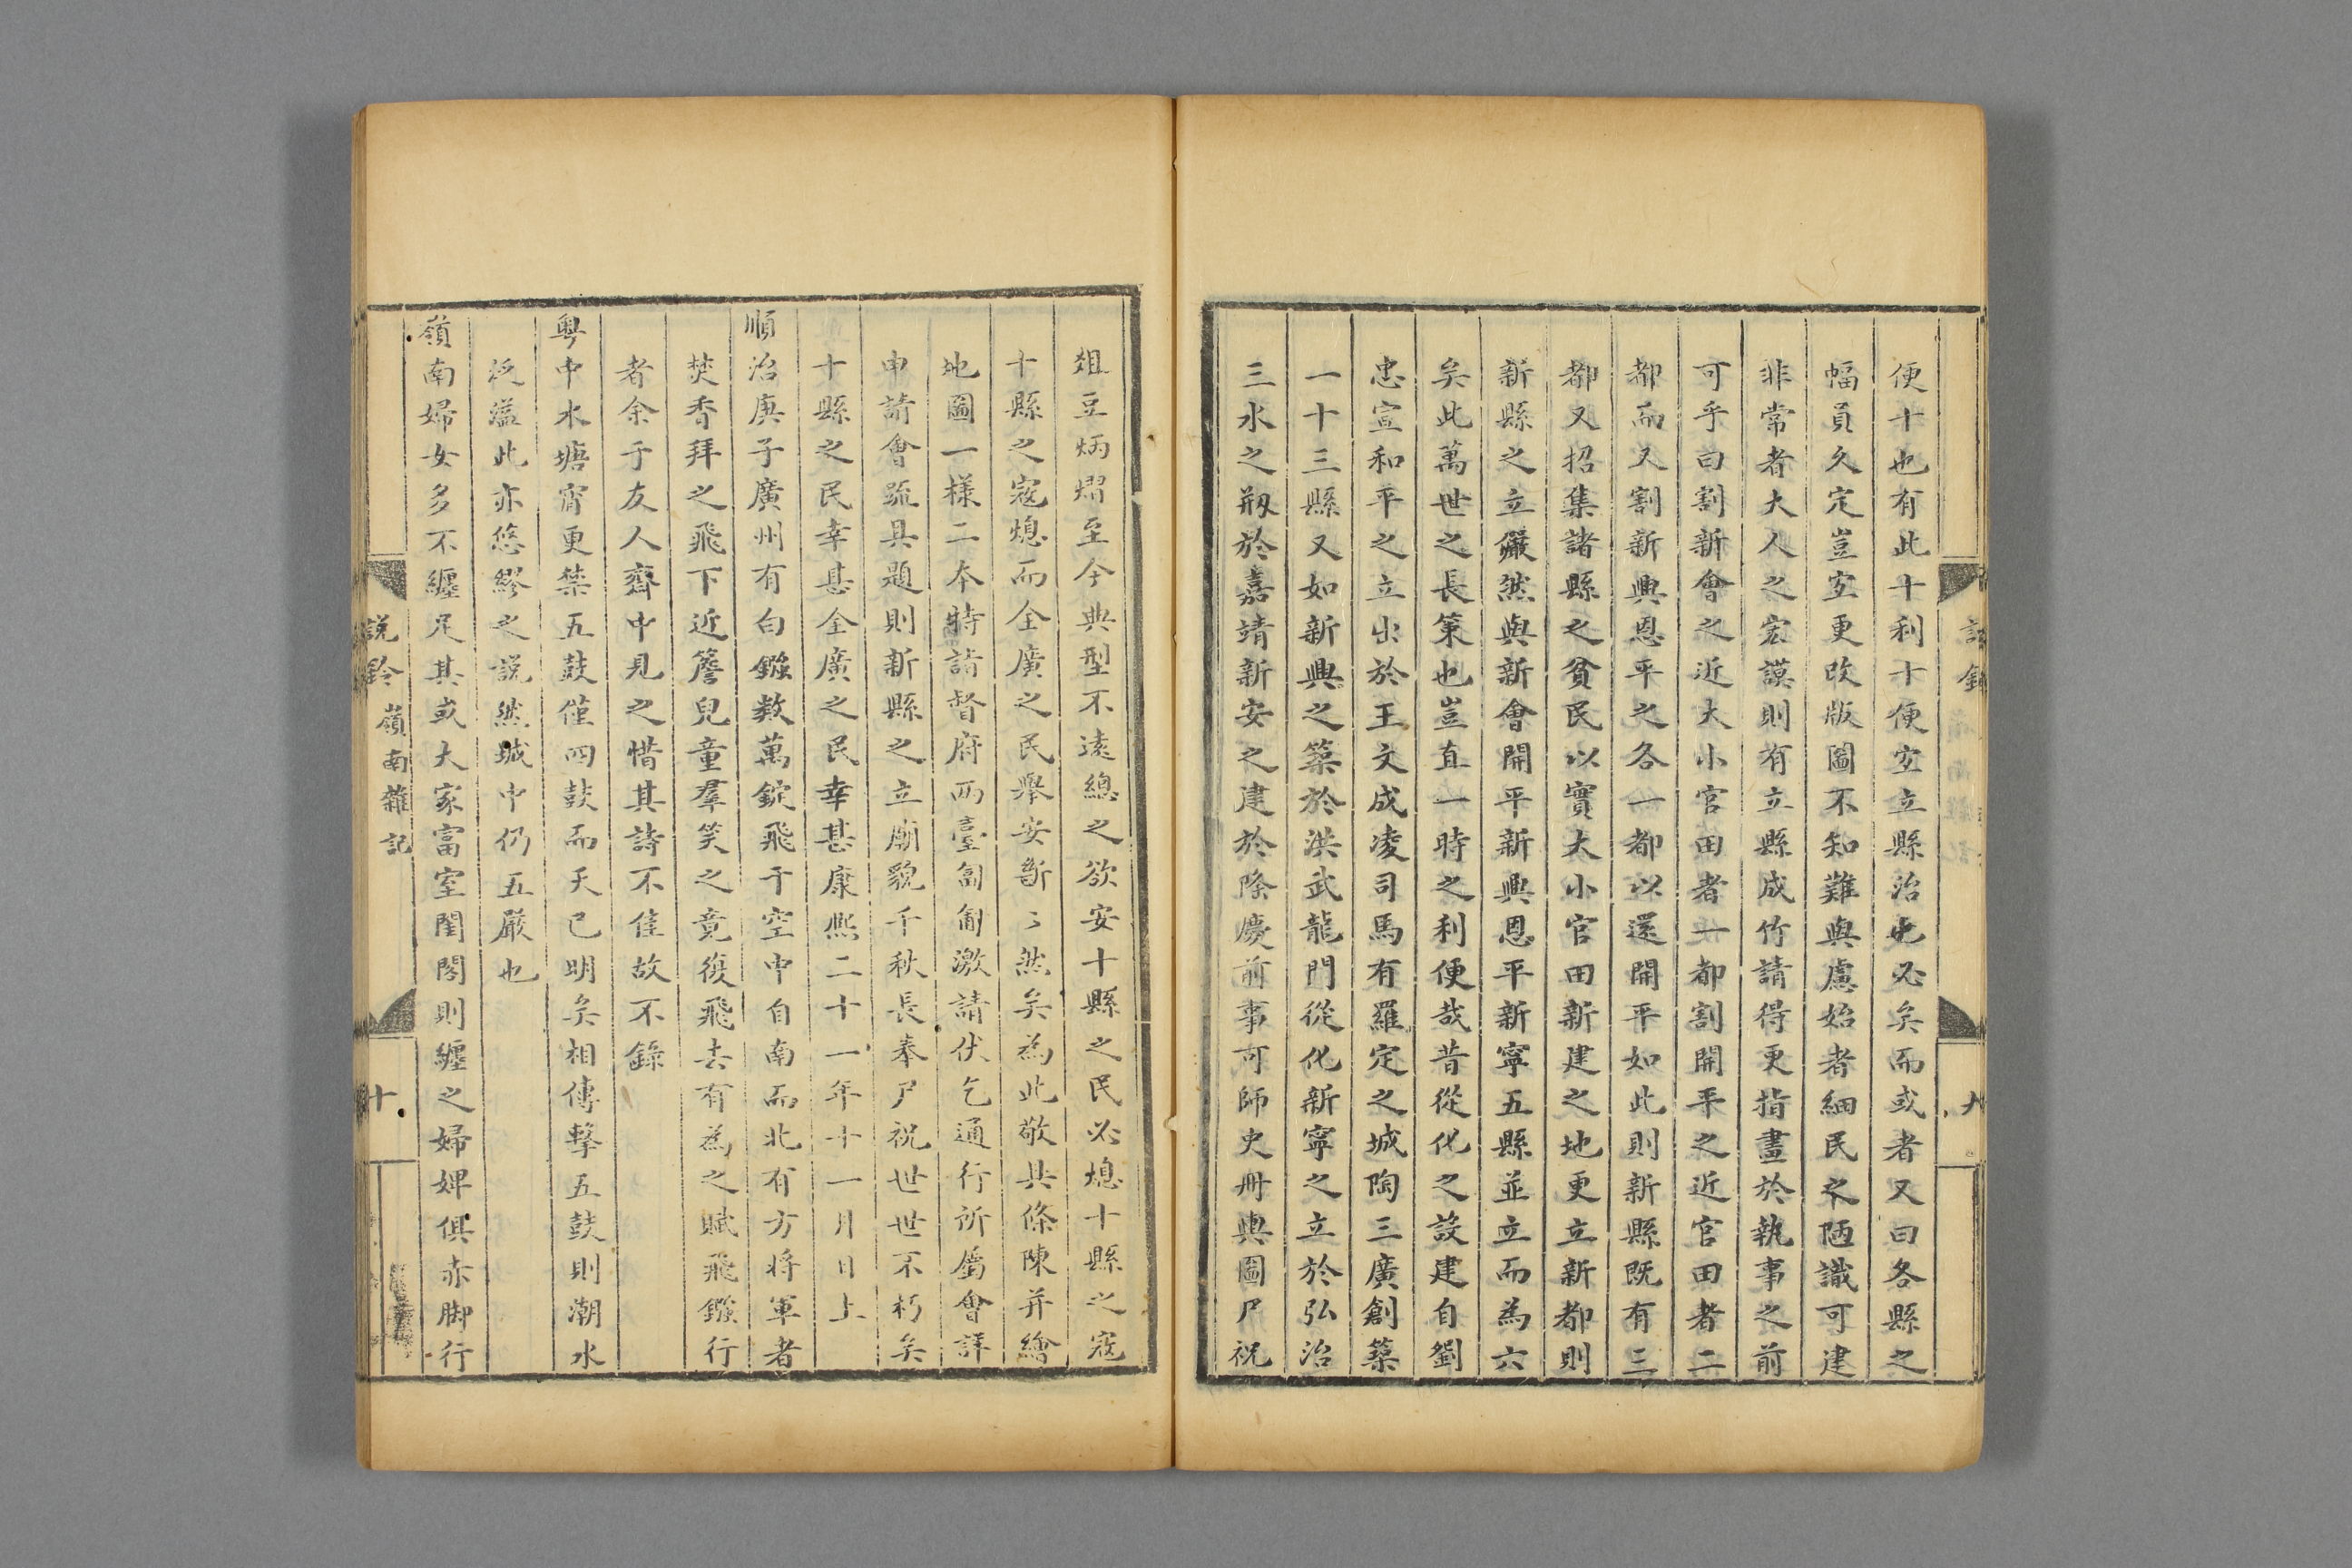 便十也有此十利十便宐立縣治也必矣而或者又曰各縣之
幅員久定豈宐更改版圖不知難與慮始者細民之陋識可建
非常者大人之宏謨則有立縣成竹請得更指畫於執事之前
可乎曰割新會之近大小官田者一都割開平之近官田者二
都而又割新興恩平之各一都以還開平如此則新縣既有三
都又招集諸縣之貧民以實大小官田新建之地更立新都則
新縣之立儼然與新會開平新興恩平新寧五縣並立而為六
矣此萬世之長策也豈直一時之利便哉昔從化之設建自劉
忠宣和平之立出於王文成凌司馬有羅定之城陶三廣創築
一十三縣又如新興之築於洪武龍門從化新寧之立於弘治
三水之剏於嘉靖新安之建於隆慶前事可師史冊輿圖尸祝
九
俎豆炳熠至今典型不遠總之欲安十縣之民必熄十縣之寇
十縣之寇熄而全廣之民舉安斷〻然矣為此敬具條陳并繪
地圖一樣二本特請督府兩臺匐匍激請伏乞通行所屬會詳
申請會疏具題則新縣之立廟貌千秋長奉尸祝世世不朽矣
十縣之民幸甚全廣之民幸甚康熙二十一年十一月日上
順治庚子廣州有白鏹數萬錠飛于空中自南而北有方將軍者
焚香拜之飛下近簷兒童羣笑之竟復飛去有為之賦飛鏹行
者余于友人齋中見之惜其詩不佳故不錄
粵中水塘宵更禁五鼓僅四鼓而天已明矣相傳擊五鼓則潮水
泛溢此亦悠繆之說然城中仍五嚴也
嶺南婦女多不纏足其或大家富室閨閣則纏之婦婢俱赤脚行
說鈴 嶺南雜記
十